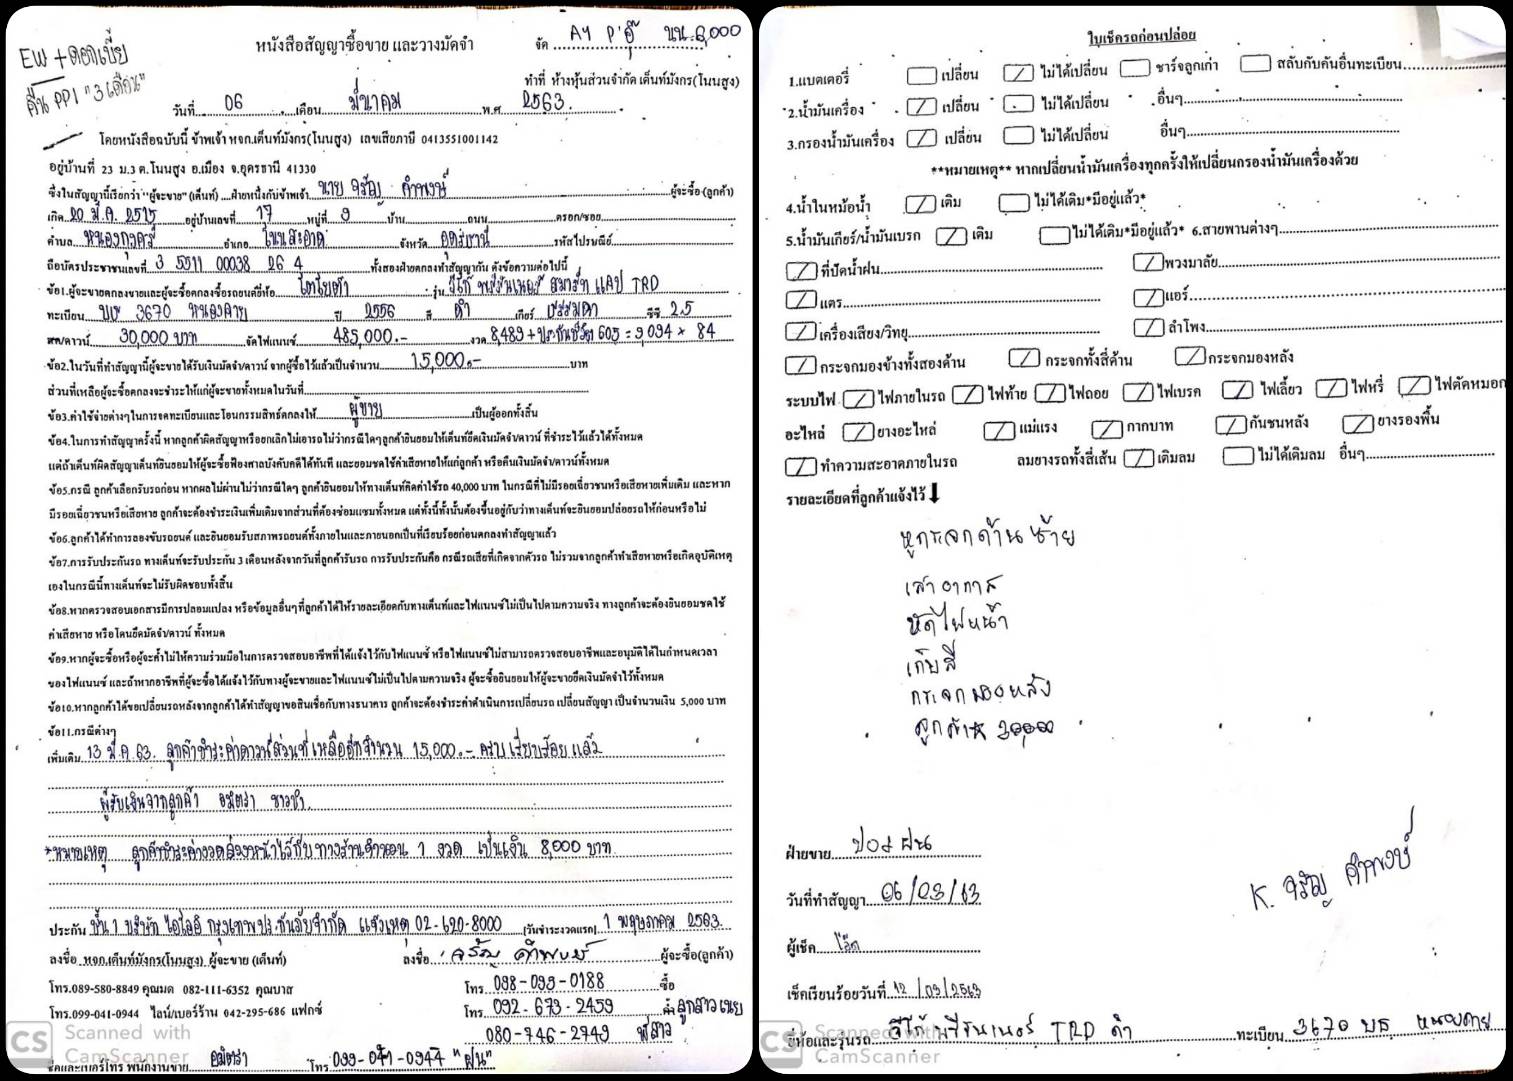 EW + ดอกเบี้ย
คืน PP1 "3 เดือน"
หนังสือสัญญาซื้อขาย และวางมัดจำ
จัด AY P'อุ๊ นน.8,000
ทำที่ ห้างหุ้นส่วนจำกัด เต็นท์มังกร(โนนสูง)
วันที่ 06 เดือน มีนาคม พ.ศ 2563.
โดยหนังสือฉบับนี้ ข้าพเจ้า หจก.เต็นท์มังกร(โนนสูง) เลขเสียภาษี 0413551001142
อยู่บ้านที่ 23 ม.3 ต.โนนสูง อ.เมือง จ.อุดรธานี 41330
ซึ่งในสัญญานี้เรียกว่า "ผู้จะขาย" (เต็นท์) ....ฝ่ายหนึ่งกับข้าพเจ้า นาย จรัญ คำพงษ์ ผู้จะซื้อ (ลูกค้า)
เกิด 20 มี.ค. 2515 อยู่บ้านเลขที่ 17 หมู่ที่ 9 บ้าน ถนน ตรอก/ซอย
ตำบล หนองกุงศรี อำเภอ โนนสะอาด จังหวัด อุดรธานี รหัสไปรษณีย์
ถือบัตรประชาชนเลขที่ 3 5511 00038 26 4 ทั้งสองฝ่ายตกลงทำสัญญากัน ดังข้อความต่อไปนี้
ข้อ1.ผู้จะขายตกลงขายและผู้จะซื้อตกลงซื้อรถยนต์ยี่ห้อ โตโยต้า รุ่น วีโก้ พรีรันเนอร์ สมาร์ท แคป TRD
ทะเบียน บห 3670 หนองคาย ปี 2556 สี ดำ เกียร์ ธรรมดา ซีซี 2.5
สด/ดาวน์ 30,000 บาท จัดไฟแนนซ์ 485,000.- งวด 8,489 + ประกันชีวิต 605 = 9,094 × 84
ข้อ2.ในวันที่ทำสัญญานี้ผู้จะขายได้รับเงินมัดจำ/ดาวน์ จากผู้ซื้อไว้แล้วเป็นจำนวน 15,000.- บาท
ส่วนที่เหลือผู้จะซื้อตกลงจะชำระให้แก่ผู้จะขายทั้งหมดในวันที่
ข้อ3.ค่าใช้จ่ายต่างๆในการจดทะเบียนและโอนกรรมสิทธ์ตกลงให้ ผู้ขาย เป็นผู้ออกทั้งสิ้น
ข้อ4.ในการทำสัญญาครั้งนี้ หากลูกค้าผิดสัญญาหรือยกเลิกไม่เอารถไม่ว่ากรณีใดๆลูกค้ายินยอมให้เต็นท์ยึดเงินมัดจำ/ดาวน์ ที่ชำระไว้แล้วได้ทั้งหมด
แต่ถ้าเต็นท์ผิดสัญญาเต็นท์ยินยอมให้ผู้จะซื้อฟ้องศาลบังคับคดีได้ทันที และยอมชดใช้ค่าเสียหายให้แก่ลูกค้า หรือคืนเงินมัดจำ/ดาวน์ทั้งหมด
ข้อ5.กรณี ลูกค้าเลือกรับรถก่อน หากผลไม่ผ่านไม่ว่ากรณีใดๆ ลูกค้ายินยอมให้ทางเต็นท์คิดค่าใช้รถ 40,000 บาท ในกรณีที่ไม่มีรอยเฉี่ยวชนหรือเสียหายเพิ่มเติม และหาก
มีรอยเฉี่ยวชนหรือเสียหาย ลูกค้าจะต้องชำระเงินเพิ่มเติมจากส่วนที่ต้องซ่อมแซมทั้งหมด แต่ทั้งนี้ทั้งนั้นต้องขึ้นอยู่กับว่าทางเต็นท์จะยินยอมปล่อยรถให้ก่อนหรือไม่
ข้อ6.ลูกค้าได้ทำการลองขับรถยนต์ และยินยอมรับสภาพรถยนต์ทั้งภายในและภายนอกเป็นที่เรียบร้อยก่อนตกลงทำสัญญาแล้ว
ข้อ7.การรับประกันรถ ทางเต็นท์จะรับประกัน 3 เดือนหลังจากวันที่ลูกค้ารับรถ การรับประกันคือ กรณีรถเสียที่เกิดจากตัวรถ ไม่รวมจากลูกค้าทำเสียหายหรือเกิดอุบัติเหตุ
เองในกรณีนี้ทางเต็นท์จะไม่รับผิดชอบทั้งสิ้น
ข้อ8.หากตรวจสอบเอกสารมีการปลอมแปลง หรือข้อมูลอื่นๆที่ลูกค้าได้ให้รายละเอียดกับทางเต็นท์และไฟแนนซ์ไม่เป็นไปตามความจริง ทางลูกค้าจะต้องยินยอมชดใช้
ค่าเสียหาย หรือโดนยึดมัดจำ/ดาวน์ ทั้งหมด
ข้อ9.หากผู้จะซื้อหรือผู้จะค้ำไม่ให้ความร่วมมือในการตรวจสอบอาชีพที่ได้แจ้งไว้กับไฟแนนซ์ หรือไฟแนนซ์ไม่สามารถตรวจสอบอาชีพและอนุมัติได้ในกำหนดเวลา
ของไฟแนนซ์ และถ้าหากอาชีพที่ผู้จะซื้อได้แจ้งไว้กับทางผู้จะขายและไฟแนนซ์ไม่เป็นไปตามความจริง ผู้จะซื้อยินยอมให้ผู้จะขายยึดเงินมัดจำไว้ทั้งหมด
ข้อ10.หากลูกค้าได้ขอเปลี่ยนรถหลังจากลูกค้าได้ทำสัญญาขอสินเชื่อกับทางธนาคาร ลูกค้าจะต้องชำระค่าดำเนินการเปลี่ยนรถ เปลี่ยนสัญญา เป็นจำนวนเงิน 5,000 บาท
ข้อ11.กรณีต่างๆ
เพิ่มเติม 13 มี.ค 63. ลูกค้าชำระค่าดาวน์ส่วนที่เหลืออีกจำนวน 15,000.- ครบเรียบร้อยแล้ว
ผู้รับเงินจากลูกค้า
*หมายเหตุ ลูกค้าชำระค่างวดล่วงหน้าไว้กับทางร้านจำนวน 1 งวด เป็นเงิน 8,000 บาท.
ประกัน ชั้น 1 บริษัท ไอโออิ กรุงเทพประกันภัยจำกัด แจ้งเหตุ 02-620-8000 (วันชำระงวดแรก) 1 พฤษภาคม 2563.
ลงชื่อ หจก.เต็นท์มังกร(โนนสูง) ผู้จะขาย (เต็นท์) ลงชื่อ จรัญ คำพงษ์ ผู้จะซื้อ(ลูกค้า)
โทร.089-580-8849 คุณมด 082-111-6352 คุณบาส โทร. 098-099-0188 ซื้อ
โทร.099-041-0944 ไลน์/เบอร์ร้าน 042-295-686 แฟกซ์ โทร. 092-673-2459 ค้ำ ลูกสาวเขย
080-746-2749 พี่สาว
ชื่อและเบอร์โทร พนักงานขาย โทร 099-041-0944 "ฝน"
CS Scanned with
CamScanner
ใบเช็ครถก่อนปล่อย
1.แบตเตอรี่ เปลี่ยน ไม่ได้เปลี่ยน ชาร์จลูกเก่า สลับกับคันอื่นทะเบียน
2.น้ำมันเครื่อง เปลี่ยน ไม่ได้เปลี่ยน อื่นๆ
3.กรองน้ำมันเครื่อง เปลี่ยน ไม่ได้เปลี่ยน อื่นๆ
**หมายเหตุ** หากเปลี่ยนน้ำมันเครื่องทุกครั้งให้เปลี่ยนกรองน้ำมันเครื่องด้วย
4.น้ำในหม้อน้ำ เติม ไม่ได้เติม*มีอยู่แล้ว*
5.น้ำมันเกียร์/น้ำมันเบรก เติม ไม่ได้เติม*มีอยู่แล้ว* 6.สายพานต่างๆ
ที่ปัดน้ำฝน พวงมาลัย
แตร แอร์
เครื่องเสียง/วิทยุ ลำโพง
กระจกมองข้างทั้งสองด้าน กระจกทั้งสี่ด้าน กระจกมองหลัง
ระบบไฟ ไฟภายในรถ ไฟท้าย ไฟถอย ไฟเบรค ไฟเลี้ยว ไฟหรี่ ไฟตัดหมอก
อะไหล่ ยางอะไหล่ แม่แรง กากบาท กันชนหลัง ยางรองพื้น
ทำความสะอาดภายในรถ ลมยางรถทั้งสี่เส้น เติมลม ไม่ได้เติมลม อื่นๆ
รายละเอียดที่ลูกค้าแจ้งไว้
หูกระจกด้านซ้าย
เสาอากาศ
ขัดไฟหน้า
เก็บสี
กระจกมองหลัง
ฝ่ายขาย ปอม ฝน
วันที่ทำสัญญา 06/03/63
K. จรัญ คำพงษ์
ผู้เช็ค
เช็คเรียบร้อยวันที่ 12/03/2563
ยี่ห้อและรุ่นรถ วีโก้ พรีรันเนอร์ TRD ดำ ทะเบียน 3670 บห หนองคาย
CS Scanned with
CamScanner